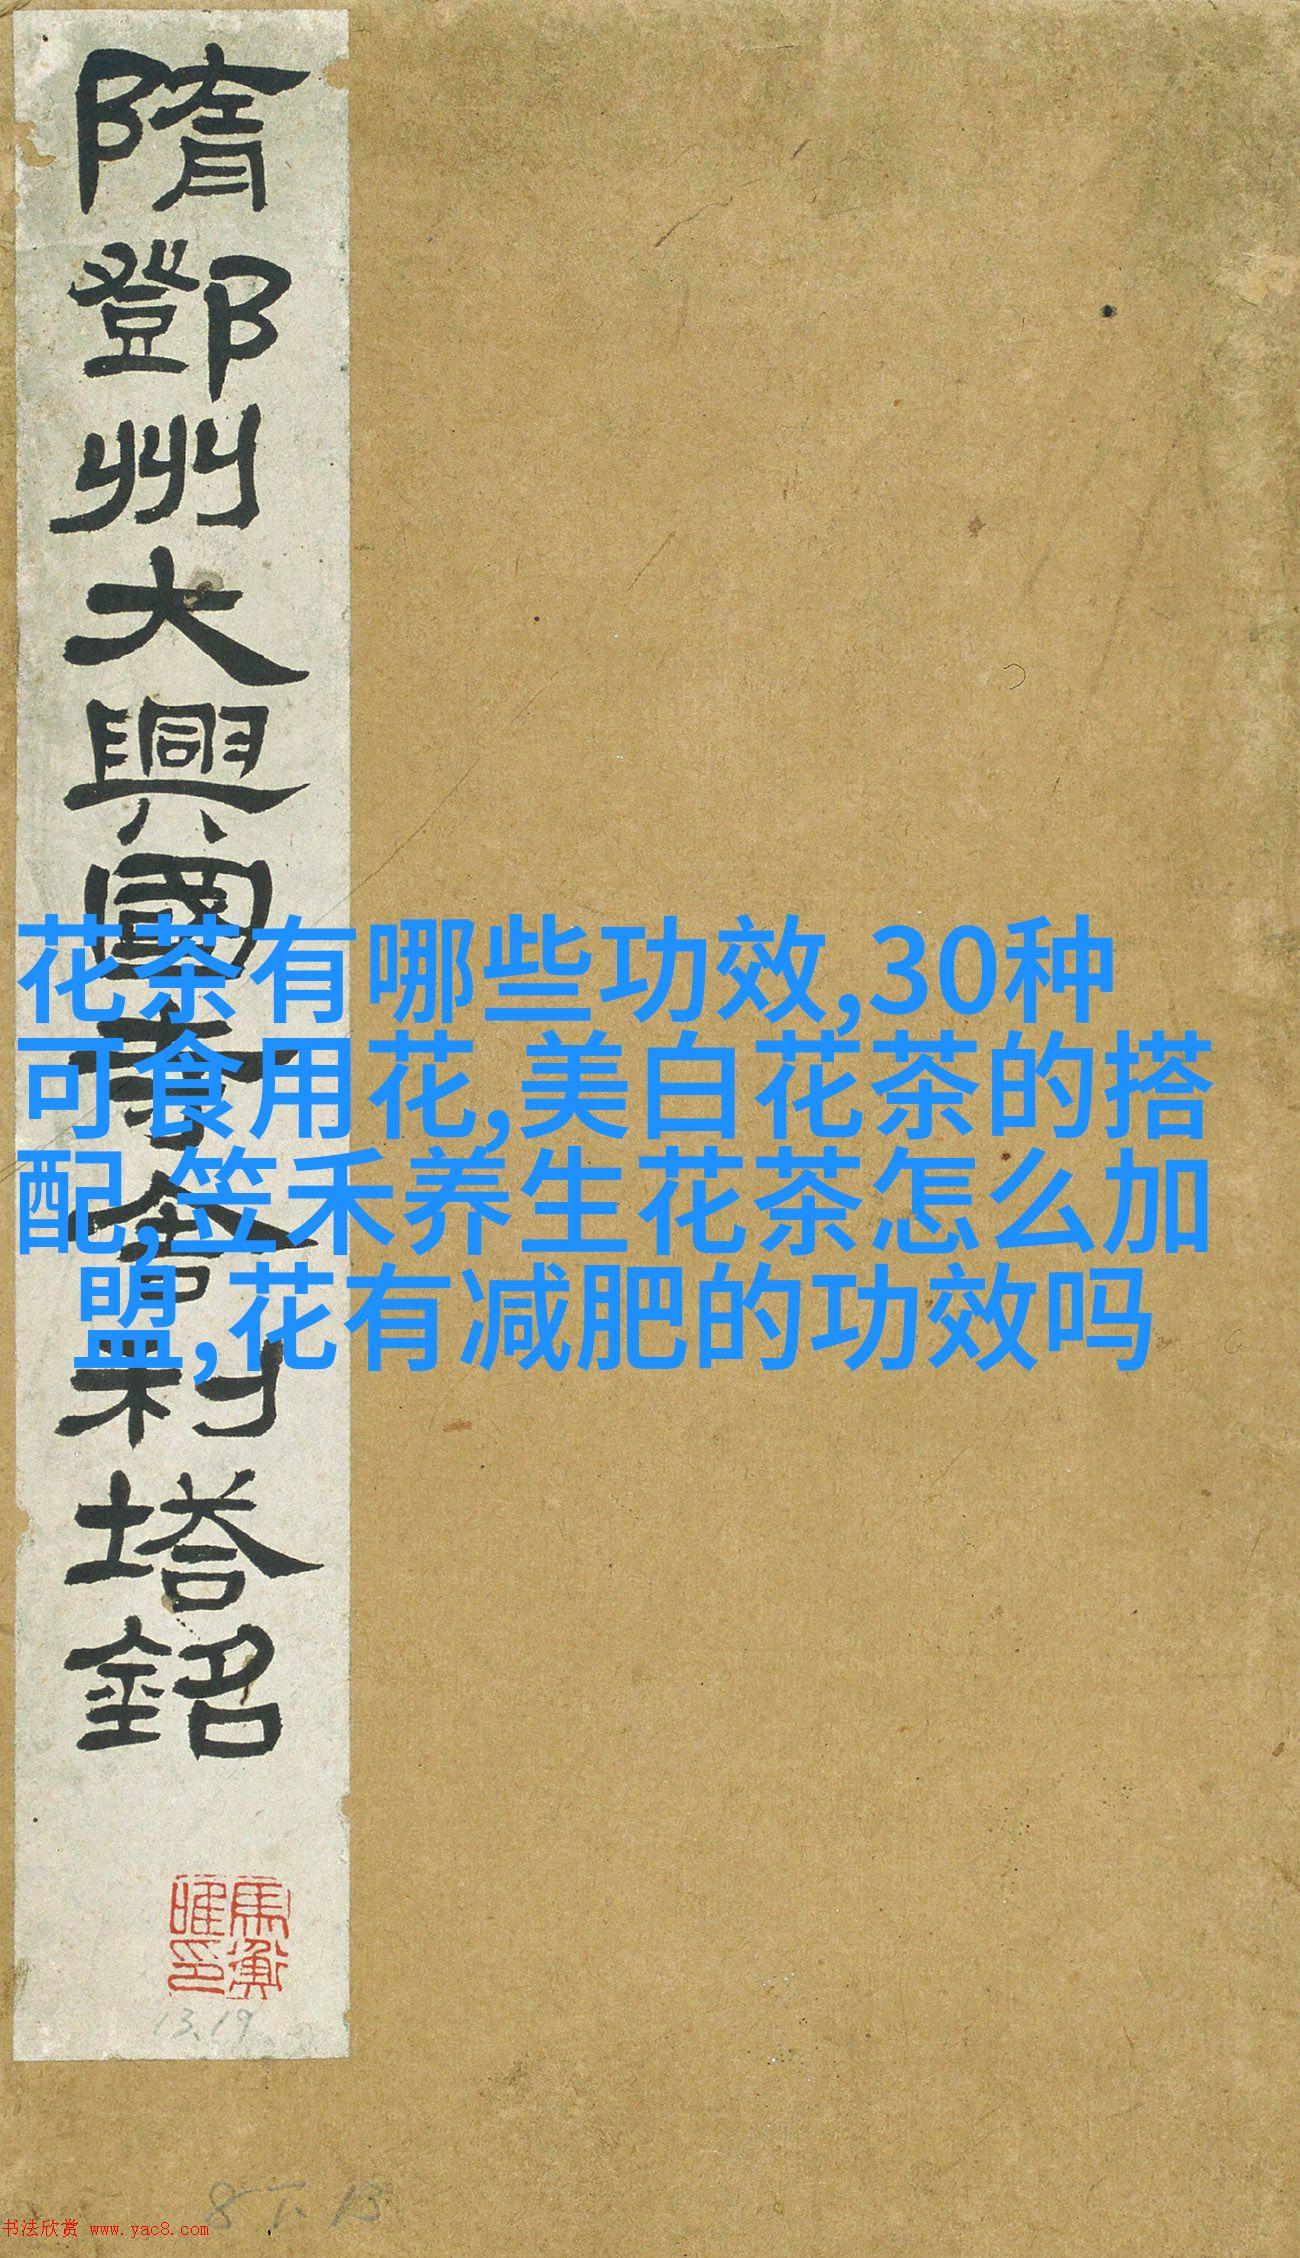 隋鄧州大興國寺舍利塔銘
花茶有哪些功效,30种
可食用花,美白花茶的搭
配,笠禾养生花茶怎么加
盟,花有减肥的功效吗
馬衡
13.19
8下13
书法欣赏 www.yac8.com